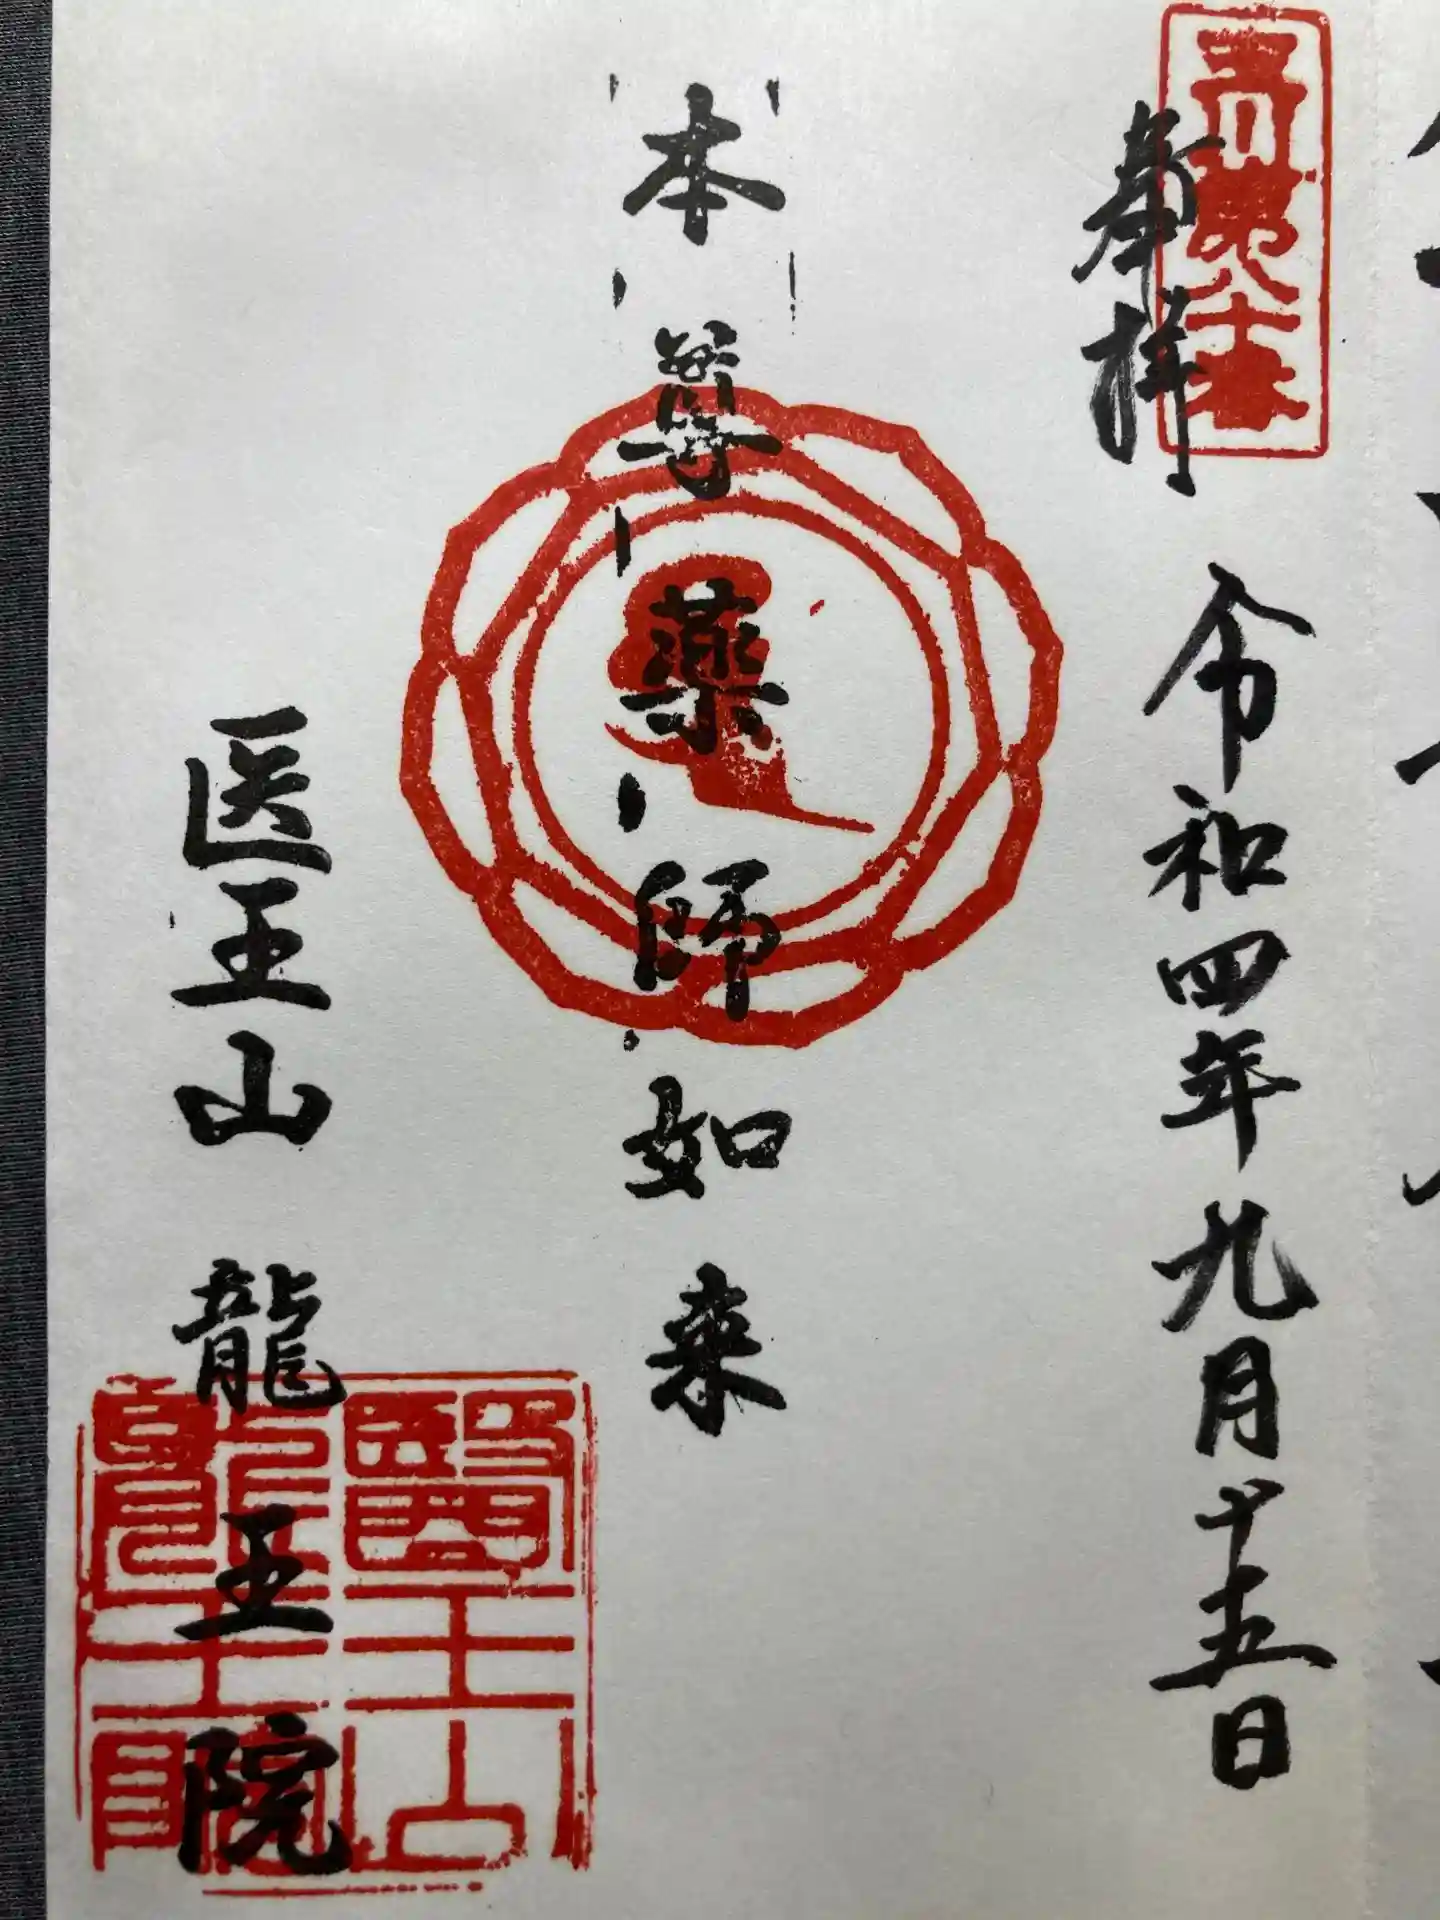 玉川第八十番
奉拝
令和四年九月十五日
本尊薬師如来
医王山 龍王院
醫王山
龍王院